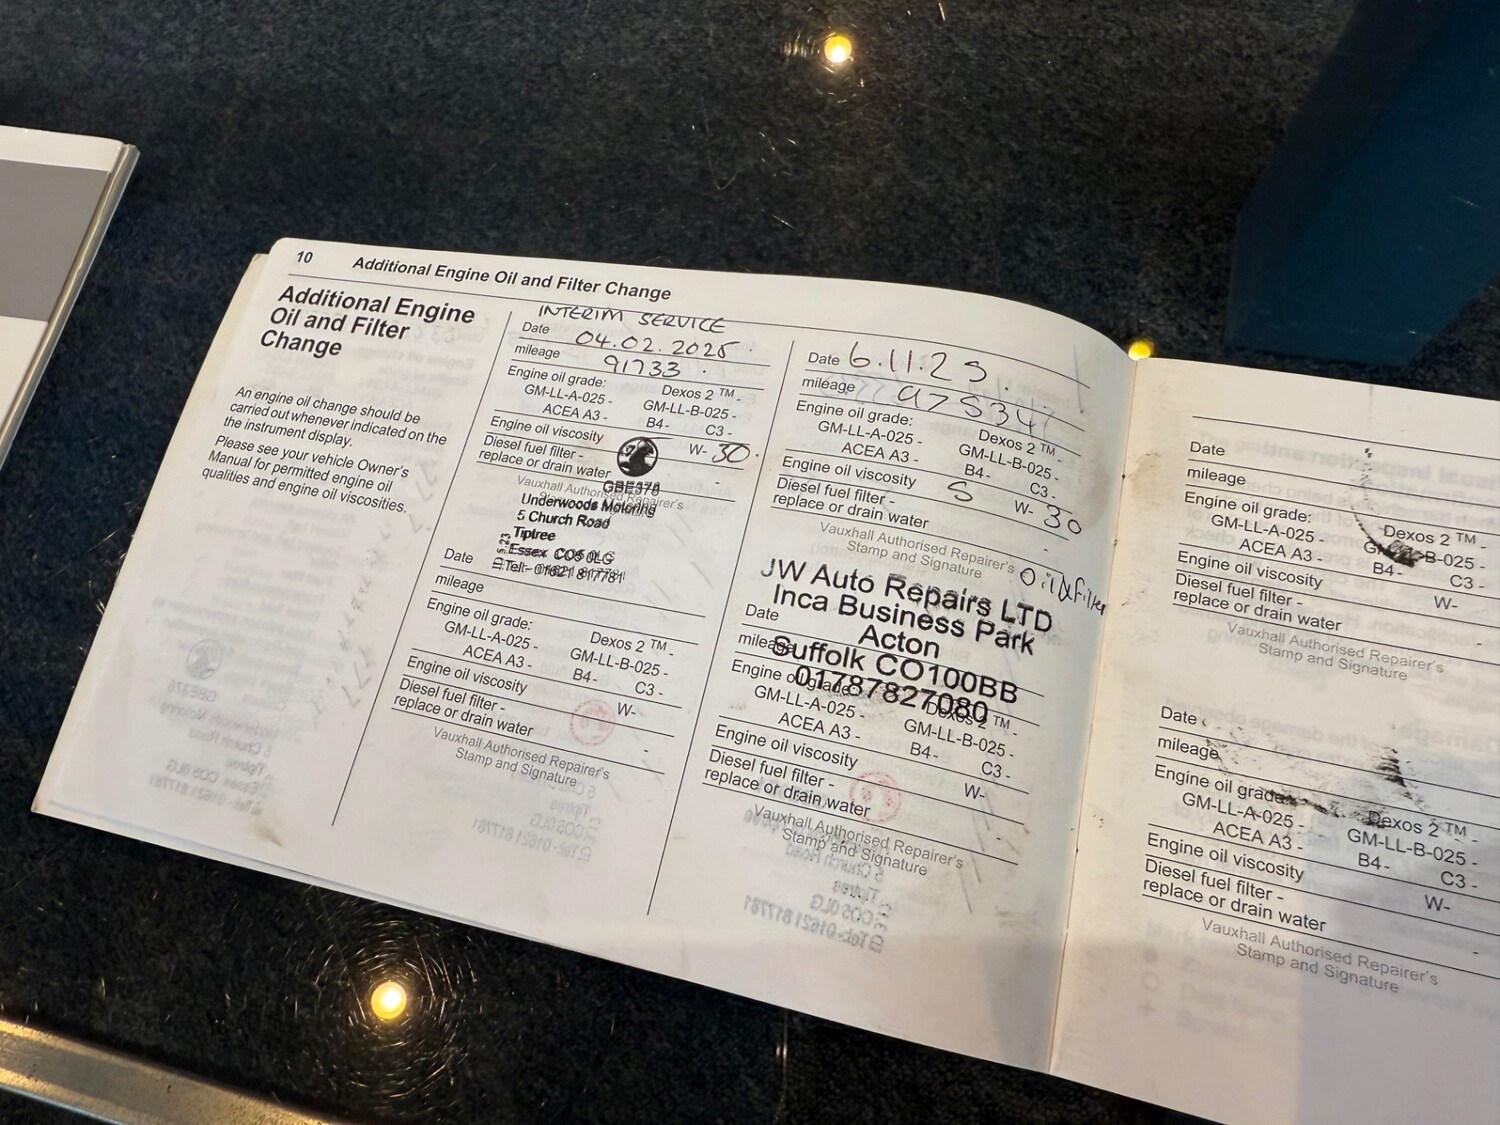 10
Additional Engine Oil and Filter Change
Additional Engine
Oil and Filter
Change
An engine oil change should be
carried out whenever indicated on the
the instrument display.
Please see your vehicle Owner's
Manual for permitted engine oil
qualities and engine oil viscosities.
INTERIM SERVICE
Date 04.02.2025.
mileage 91733.
Engine oil grade: Dexos 2 ™ -
GM-LL-A-025 - GM-LL-B-025 -
ACEA A3 - B4- C3 -
Engine oil viscosity W- 30.
Diesel fuel filter -
replace or drain water -
Vauxhall Authorised Repairer's
GBE378
Underwoods Motoring
5 Church Road
Tiptree
Essex CO5 0LG
Tel:- 01621 817781
Date
mileage
Engine oil grade: Dexos 2 ™ -
GM-LL-A-025 - GM-LL-B-025 -
ACEA A3 - B4- C3 -
Engine oil viscosity W-
Diesel fuel filter -
replace or drain water -
Vauxhall Authorised Repairer's
Stamp and Signature
Date 6.11.25.
mileage
Engine oil grade: Dexos 2 ™ -
GM-LL-A-025 - GM-LL-B-025 -
ACEA A3 - B4- C3 -
Engine oil viscosity 5 W- 30
Diesel fuel filter -
replace or drain water -
Vauxhall Authorised Repairer's
Stamp and Signature
Oil & filter
JW Auto Repairs LTD
Inca Business Park
Acton
Suffolk CO100BB
01787827080
Date
mileage
Engine oil grade: Dexos 2 ™ -
GM-LL-A-025 - GM-LL-B-025 -
ACEA A3 - B4- C3 -
Engine oil viscosity W-
Diesel fuel filter -
replace or drain water -
Vauxhall Authorised Repairer's
Stamp and Signature
Date
mileage
Engine oil grade: Dexos 2 ™ -
GM-LL-A-025 - GM-LL-B-025 -
ACEA A3 - B4- C3 -
Engine oil viscosity W-
Diesel fuel filter -
replace or drain water
Vauxhall Authorised Repairer's
Stamp and Signature
Date
mileage
Engine oil grade: Dexos 2 ™ -
GM-LL-A-025 - GM-LL-B-025 -
ACEA A3 - B4- C3 -
Engine oil viscosity W-
Diesel fuel filter -
replace or drain water
Vauxhall Authorised Repairer's
Stamp and Signature